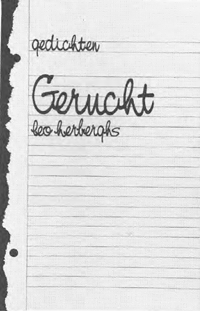 gedichten
Gerucht
leo herberghs